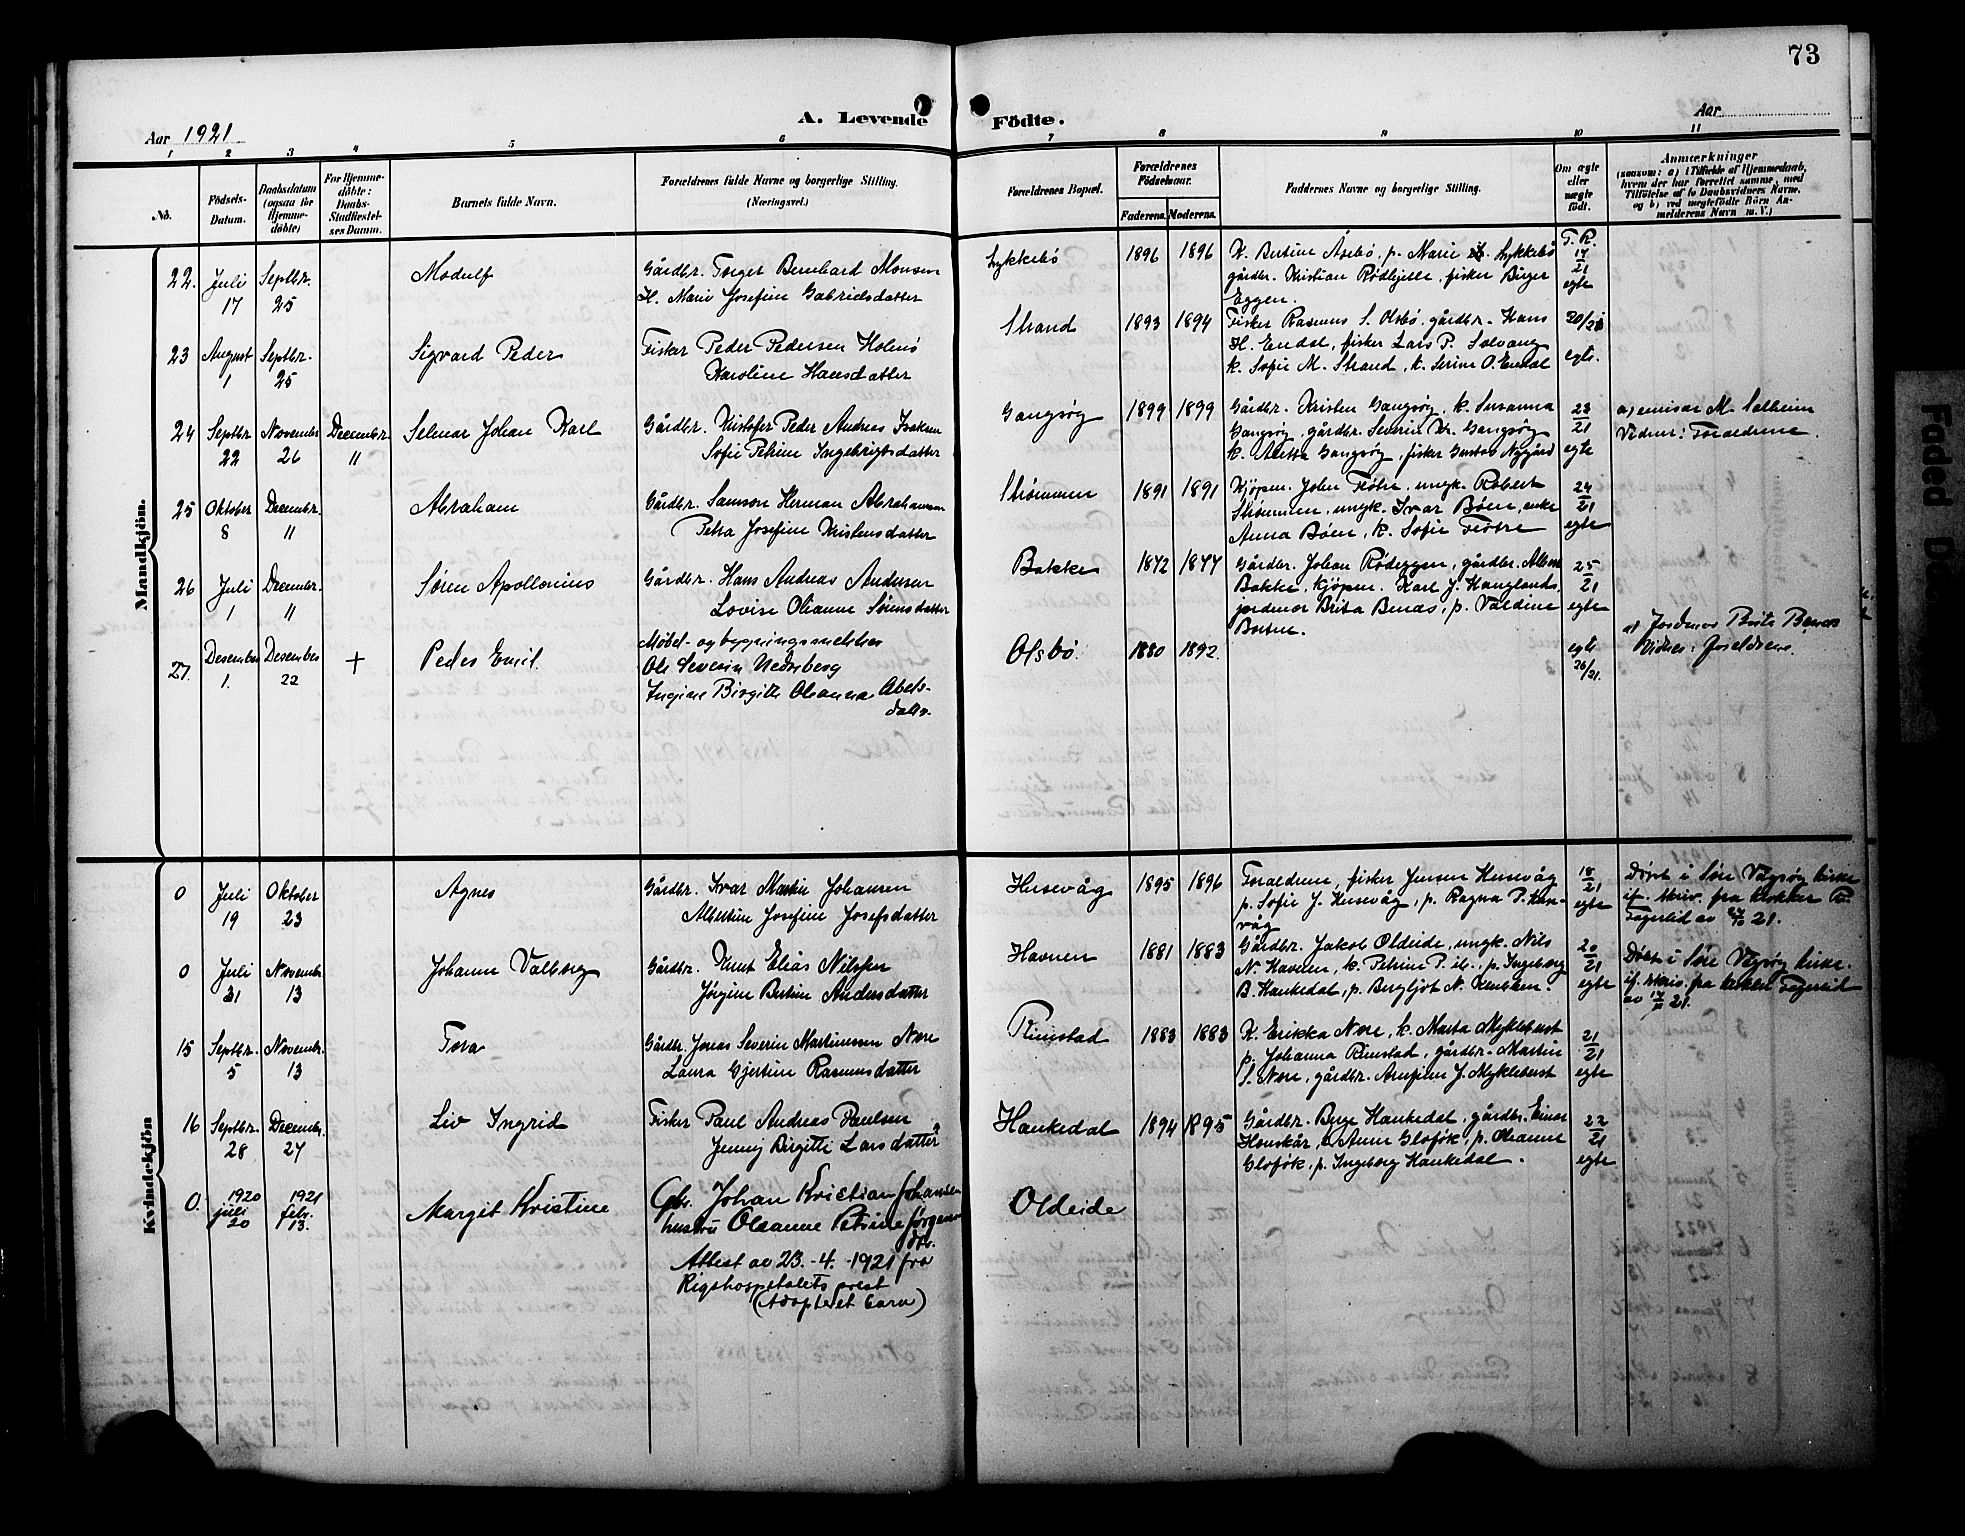 73
Aar 1921
A. Levende Födte.
Aar
1 2 3 4 5 6 7 8 9 10 11
No.
Födsels-
Datum.
Daabsdatum
(ogsaa för
Hjemme-
döbte)
For Hjemme-
döbte:
Daabs-
Stadfæstel-
ses Datum.
Barnets fulde Navn.
Forældrenes fulde Navne og borgerlige Stilling.
(Næringsvei.)
Forældrenes Bopæl.
Forældrenes
Födselsaar.
Faderens. Moderens.
Faddernes Navne og borgerlige Stilling.
Om ægte
eller
uægte
födt.
Anmærkninger
(saasom: a) i Tilfælde af Hjemmedaab,
hvem der har forrettet samme, med
Tilföielse af to Daabsvidners Navne,
og b) ved uægtefödte Börn An-
melderens Navn m. V.)
Mandkjön.
22. Juli 17 Septbr. 25 Modulf
Gårdbr. Torger Bernhard Monsen
H. Marie Josefine Gabrielsdatter
Lykkebö 1896 1896
K. Bertine Åsebö, p. Marie Lykkebö
gårdbr. Kristian Rödhjelle, fisker Birger
Eggen.
T. R. 17/21 egte
23 August 1 Septbr. 25 Sigvard Peder
Fisker Peder Pedersen Holmö
Karoline Hansdatter
Strand 1893 1894
Fisker Rasmus S. Olsbö, gårdbr. Hans
H. Endal, fisker Lars P. Solvang
k. Sofie M. Strand, k. Serine O. Endal
20/21 egte.
24 Septbr 22 November 26 December 11 Selmar Johan Karl
Gårdbr. Kristofer Peder Andreas Isaksen
Sofie Petrine Ingebrigtsdatter
Gangsøy 1899 1899
Gårdbr. Kristen Gangsøy, k. Susanna
Gangsøy, gårdbr. Severin Kr. Gangsøy
k. Aletta Gangsøy, fisker Gustav Nygård
23/21 egte
a) emisær M. Solheim
Vidner: Foreldrene.
25 Oktober 8 Decembr. 11 Abraham
Gårdbr. Samson Herman Abrahamsen
Petra Josefine Kristensdatter
Strømmen 1891 1891
Kjøpm. John Flötre, ungk. Robert
Strømmen, ungk. Ivar Böen, enke
Anna Böen, k. Sofie Flötre
24/21 egte
26 Juli 1 December. 11 Søren Apollonius
Gårdbr. Hans Andreas Andersen
Lovise Olianne Sörensdatter
Bakke 1872 1877
Gårdbr. Johan Rödeggen, gårdbr. Albert
Bakke, kjøpm. Karl J. Hauglands,
jordmor Brita Benæs, p. Valdine
Bortne.
25/21 egte
27. Desember 1. Desember 22 + Peder Emil.
Møbel- og bygningssnekker
Ole Severin Nedreberg
Ingine Birgitte Oleanna Abels-
datter.
Olsbö. 1880 1892.
egte 26/21.
a) Jordmor Brita Benæs
Vidner: foreldrene.
Kvindekjön
0 Juli 19 Oktober 23 Agnes
Gårdbr. Ivar Martin Johansen
Albertine Josefine Josefsdatter
Husevåg 1895 1896
Foreldrene, fisker Jensen Husevåg
p. Sofie J. Husevåg, p. Ragna P. Huse-
våg
18/21 egte
Døpt i Søre Vågsøy kirke
if. skriv. fra klokker R.
Fagerlid av 24/10 21.
0 Juli 31 November 13 Johanne Valborg
Gårdbr. Knut Elias Nilssen
Jørgine Bertine Andersdatter
Havnen 1881 1883
Gårdbr. Jakob Oldeide, ungk. Nils
N. Havnen, k. Petrine P. ib., p. Ingeborg
B. Haukedal, p. Bergljot N. Henöken.
20/21 egte
Døpt i Søre Vågsøy kirke.
if. skriv. fra klokker Fagerlid
av 17/11 21.
15 Septbr. 5 November. 13 Tora
Gårdbr. Jonas Severin Martinussen Nore
Laura Gjertine Rasmusdatter
Rimstad 1883 1883
K. Erikka Nore, k. Marta Myklebust
p. Johanna Rimstad, gårdbr. Martin
S. Nore, gårdbr. Arnfinn J. Myklebust
21/21 egte
16 Septbr. 28 Decembr. 27 Liv Ingrid
Fisker Paul Andreas Paulsen
Jenny Birgitte Larsdatter
Haukedal 1894 1895
Gårdbr. Berge Haukedal, gårdbr. Einar
Honskår, Anne Gloføk, p. Oleanne
Gloføk, p. Ingeborg Haukedal.
22/21 egte
0. 1920 juli 20 1921 febr. 13. Margit Kristine
Gbr. Johan Kristian Johansen
hustru Oleanne Petrine Jørgens
dtr.
Attest av 23.-4.-1921 fra
Rigshospitalets prest
(Adoptert barn)
Oldeide
Faded